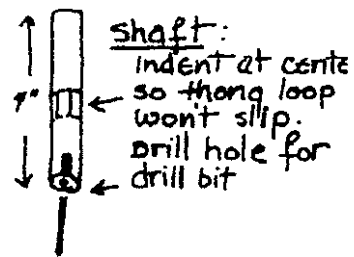 shaft:
indent at cente
so thong loop
won't slip.
Drill hole for
drill bit